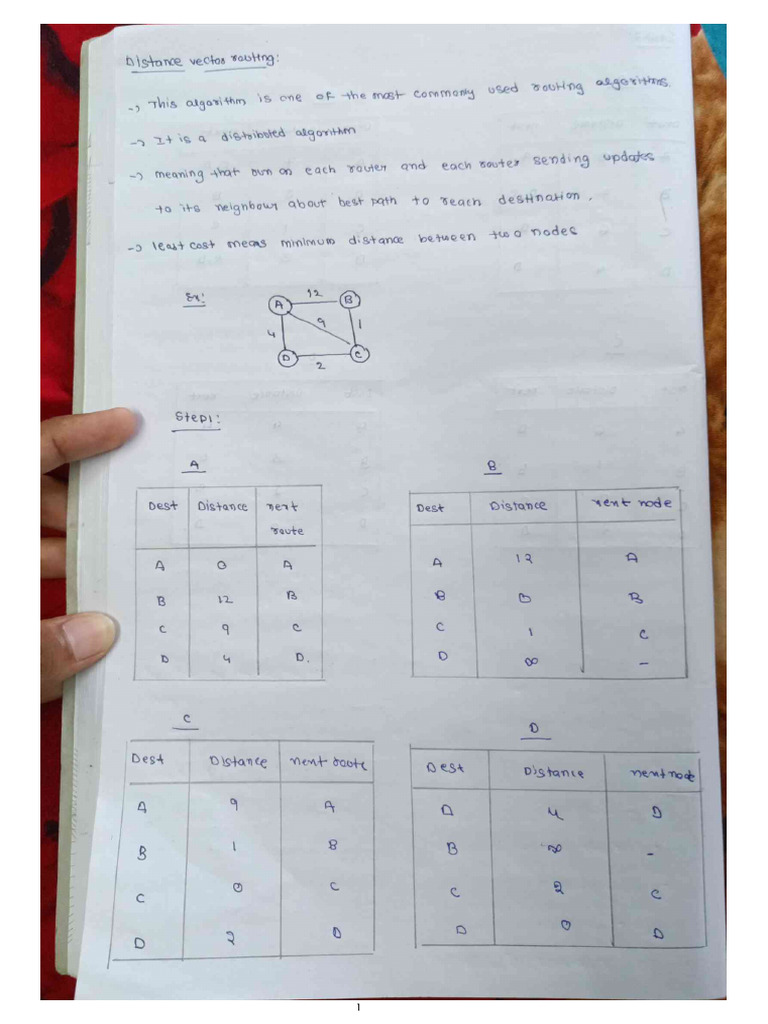 Distance vector routing:
-> This algorithm is one of the most commonly used routing algorithms.
-> It is a distributed algorithm
-> meaning that run on each router and each router sending updates
to its neighbour about best path to reach destination.
-> least cost means minimum distance between two nodes
Ex:
A 12 B
4 9 1
D 2 C
Step1:
A
Dest Distance next route
A 0 A
B 12 B
C 9 C
D 4 D.
B
Dest Distance nent node
A 12 A
B 0 B
C 1 C
D ∞ -
C
Dest Distance nent route
A 9 A
B 1 B
C 0 C
D 2 D
D
Dest Distance nent node
D 4 D
B ∞ -
C 2 C
D 0 D
1